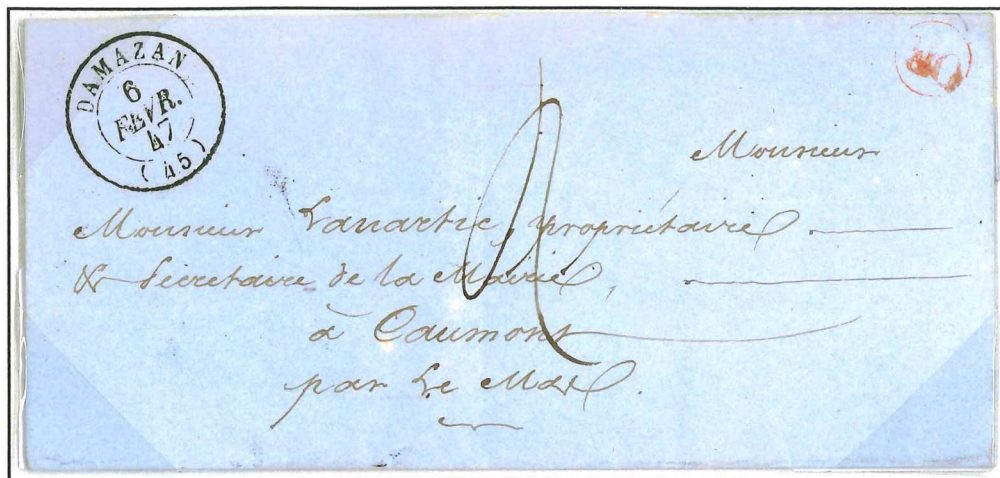 DAMAZAN
6
FEVR.
47
(45)
Monsieur
Monsieur propriétaire
& Secrétaire de la Mairie,
à Caumont
par Le Mas.